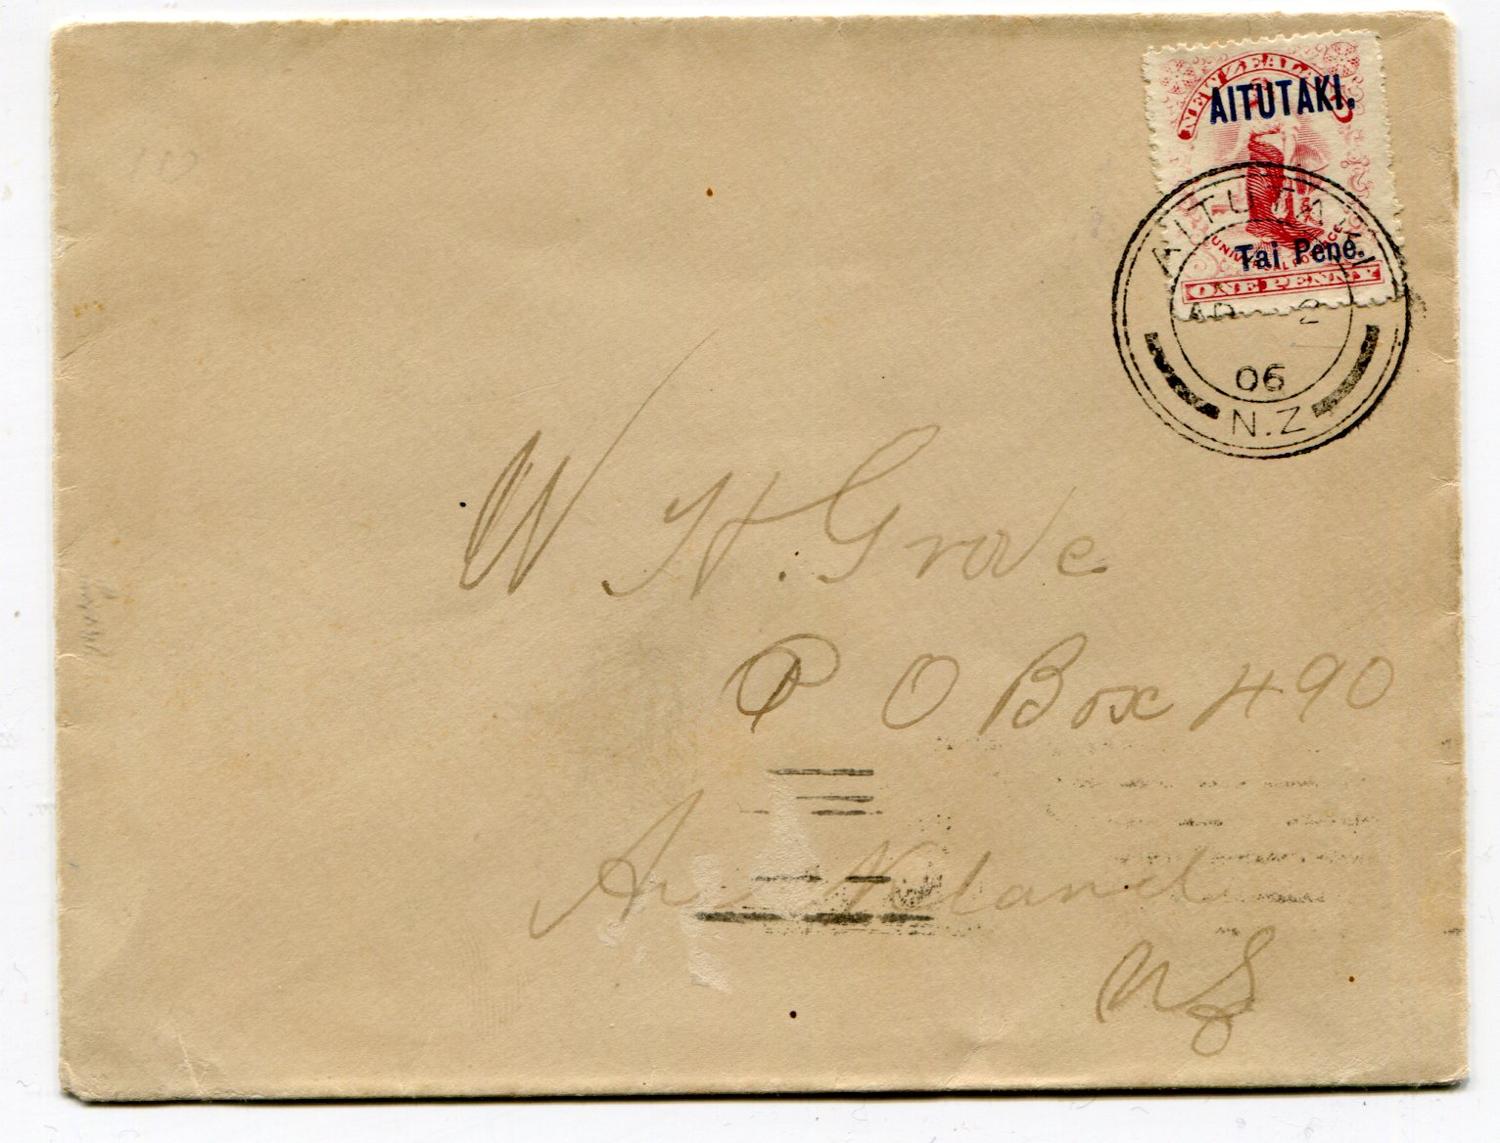 NEW ZEALAND
AITUTAKI.
UNIVERSAL POSTAGE
Tai Pene.
ONE PENNY
AITUTAKI
AP 2
06
N.Z
W H. Grove
P O Box 490
Auckland
NZ